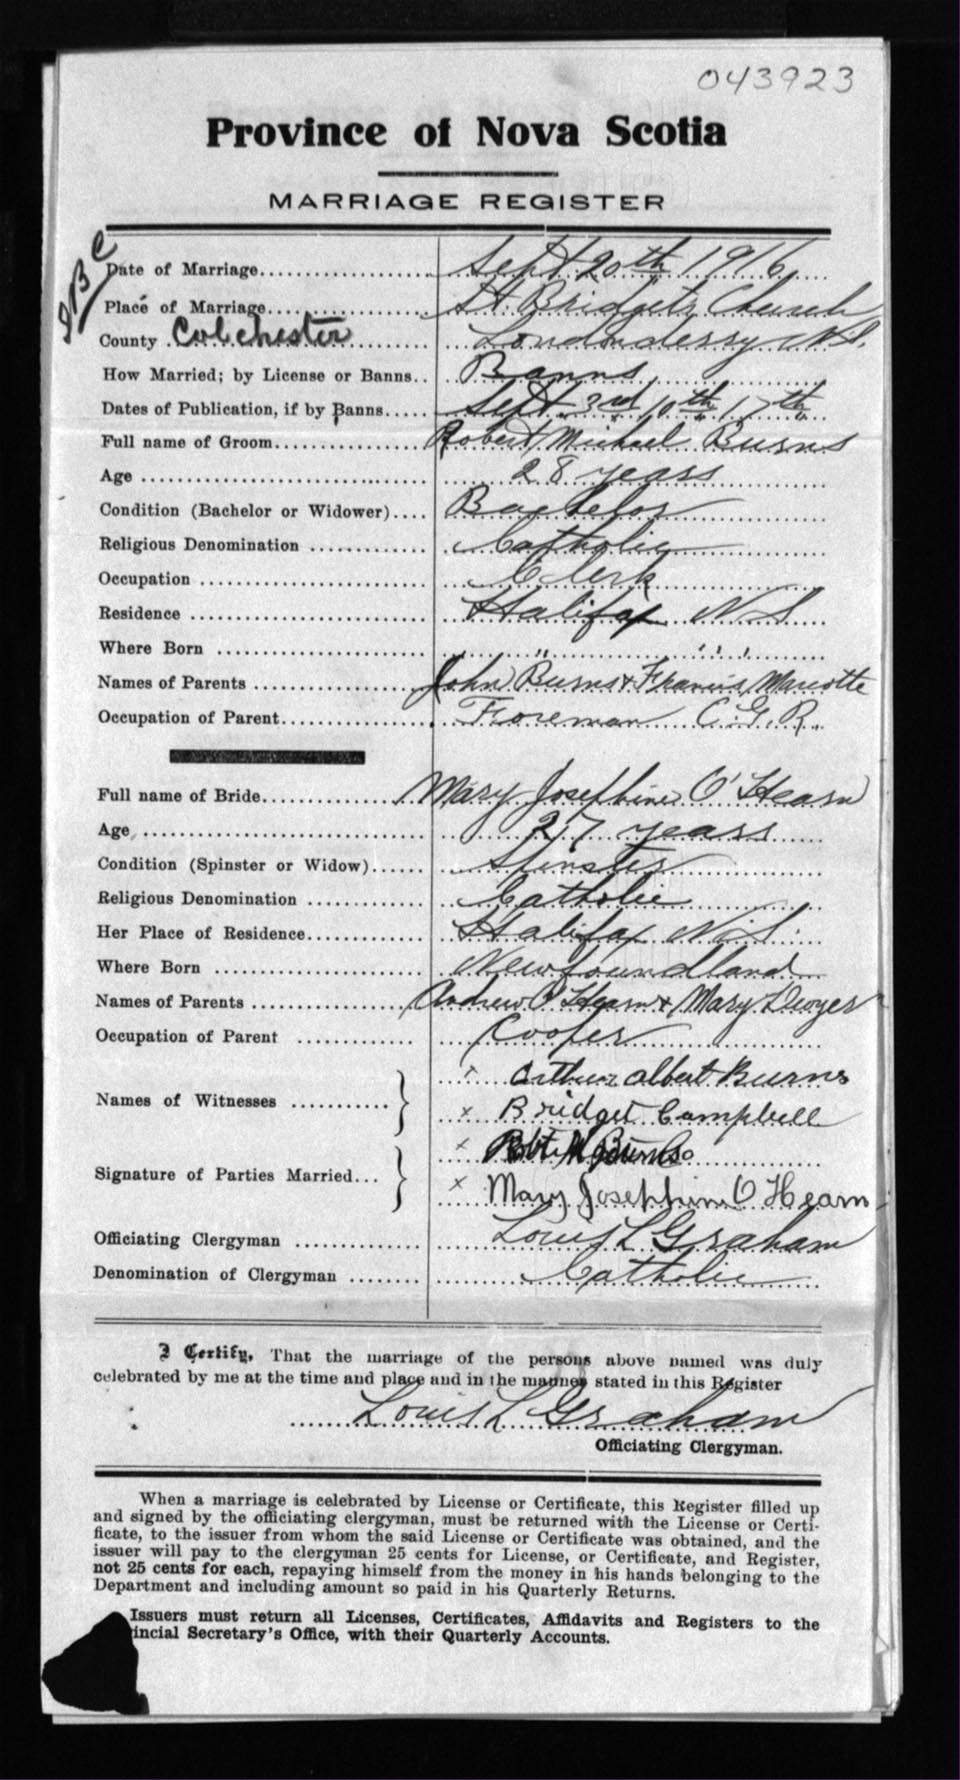 043923
Province of Nova Scotia
MARRIAGE REGISTER
Date of Marriage Sept 20th 1916
Place of Marriage St. Bridgets Church
County Colchester Londonderry N.S.
How Married; by License or Banns Banns
Dates of Publication, if by Banns Sept 3rd 10th 17th
Full name of Groom Robert Michael Burns
Age 28 years
Condition (Bachelor or Widower) Bachelor
Religious Denomination Catholic
Occupation Clerk
Residence Halifax N S
Where Born " "
Names of Parents John Burns & Francis Marcotte
Occupation of Parent Foreman C.G.R.
Full name of Bride Mary Josephine O'Hearn
Age 27 years
Condition (Spinster or Widow) Spinster
Religious Denomination Catholic
Her Place of Residence Halifax N.S.
Where Born Newfoundland
Names of Parents Andrew O'Hearn & Mary Dwyer
Occupation of Parent Cooper
x Arthur Albert Burns
Names of Witnesses
x Bridget Campbell
x Robt. M Burns
Signature of Parties Married
x Mary Josephine O Hearn
Officiating Clergyman Louis L Graham
Denomination of Clergyman Catholic
I Certify, That the marriage of the persons above named was duly
celebrated by me at the time and place and in the manner stated in this Register
Louis L Graham
Officiating Clergyman.
When a marriage is celebrated by License or Certificate, this Register filled up
and signed by the officiating clergyman, must be returned with the License or Certi-
ficate, to the issuer from whom the said License or Certificate was obtained, and the
issuer will pay to the clergyman 25 cents for License, or Certificate, and Register,
not 25 cents for each, repaying himself from the money in his hands belonging to the
Department and including amount so paid in his Quarterly Returns.
Issuers must return all Licenses, Certificates, Affidavits and Registers to the
incial Secretary's Office, with their Quarterly Accounts.